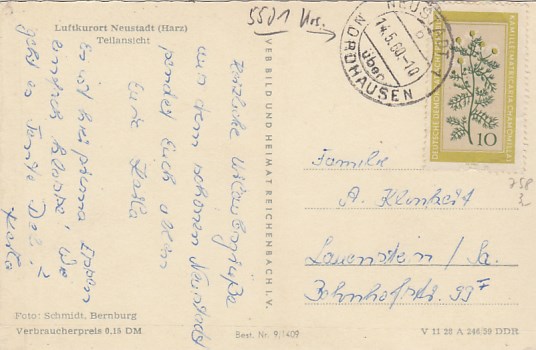 Luftkurort Neustadt (Harz)
Teilansicht
5501 Urs.
Herzliche Urlaubsgrüße
aus dem schönen Neustadt
sendet Euch allen
Eure Katha
Es ist hier prima, Essen
einfach Klasse! Wie
geht es Tante
Katha
Foto: Schmidt, Bernburg
Verbraucherpreis 0,15 DM
VEB BILD UND HEIMAT REICHENBACH I. V.
Best. Nr. 9/1409
NEUSTADT
14.5.60.-10
über
NORDHAUSEN
KAMILLE · MATRICARIA CHAMOMILLA L.
DEUTSCHE DEMOKRATISCHE
10
758
Familie
A. Klinheit
Lauenstein / Sa.
Bahnhofstr. 99 F
V 11 28 A 246/59 DDR